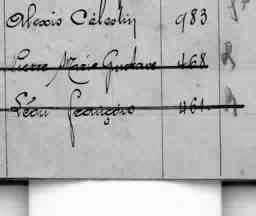 Alexis Célestin 983
Pierre Marie Gustave 468
Léon François 461